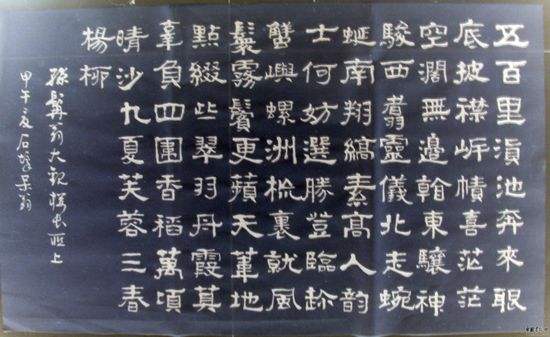 五百里滇池奔來眼
底披襟岸幘喜茫茫
空闊無邊看東驤神
駿西翥靈儀北走蜿
蜒南翔縞素高人韻
士何妨選勝登臨趁
蟹嶼螺洲梳裹就風
鬟霧鬢更蘋天葦地
點綴些翠羽丹霞莫
辜負四圍香稻萬頃
晴沙九夏芙蓉三春
楊柳
孫髯翁大觀樓長聯上
甲午之夏石